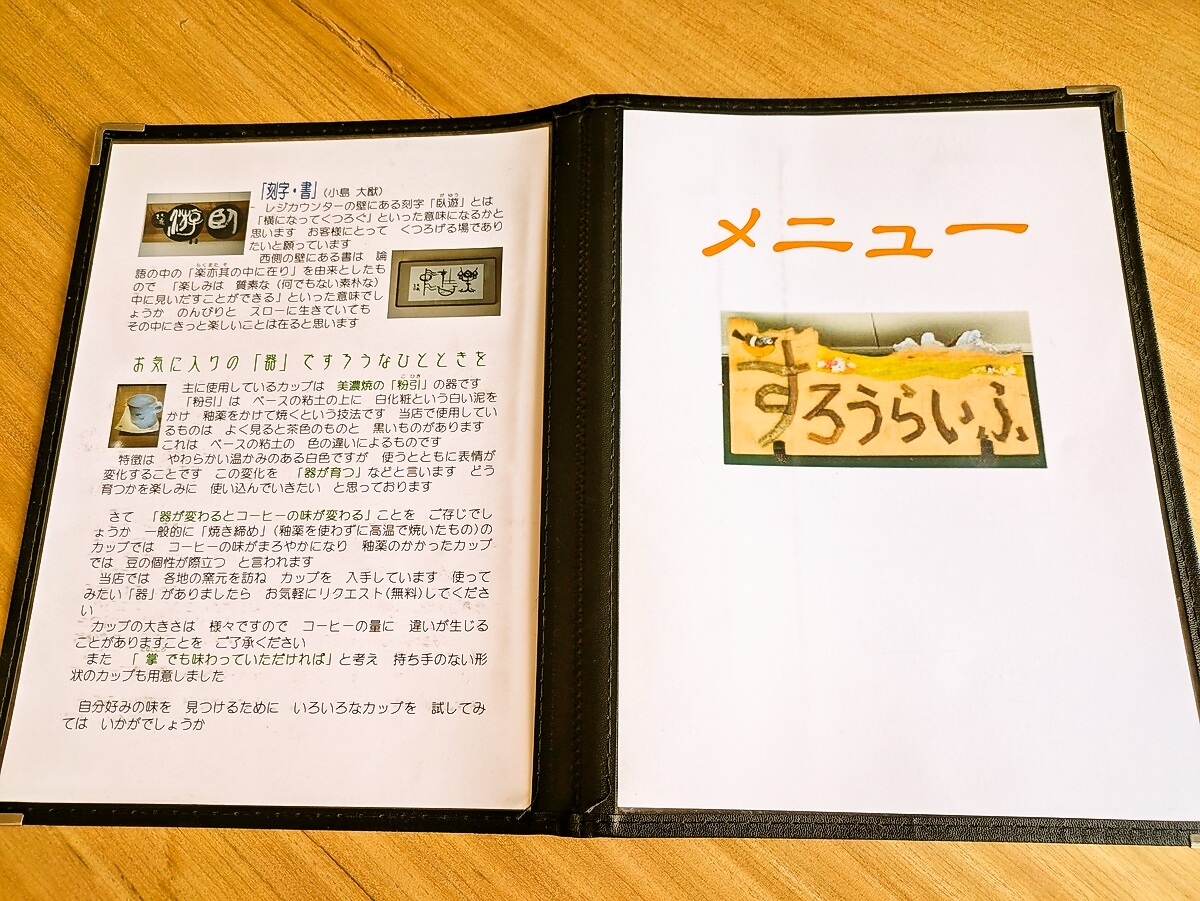 「刻字・書」（小島 大猷）
レジカウンターの壁にある刻字「臥遊」とは
がゆう
「横になってくつろぐ」といった意味になるかと
思います　お客様にとって　くつろげる場であり
たいと願っています
西側の壁にある書は　論
語の中の「楽亦其の中に在り」を由来としたも
らくまた そ
ので　「楽しみは　質素な（何でもない素朴な）
中に見いだすことができる」といった意味でし
ょうか　のんびりと　スローに生きていても
その中にきっと楽しいことは在ると思います
お気に入りの「器」ですろうなひとときを
主に使用しているカップは　美濃焼の「粉引」の器です
こひき
「粉引」は　ベースの粘土の上に　白化粧という白い泥を
かけ　釉薬をかけて焼くという技法です　当店で使用してい
るものは　よく見ると茶色のものと　黒いものがあります
これは　ベースの粘土の　色の違いによるものです
特徴は　やわらかい温かみのある白色ですが　使うとともに表情が
変化することです　この変化を　「器が育つ」などと言います　どう
育つかを楽しみに　使い込んでいきたい　と思っております
さて　「器が変わるとコーヒーの味が変わる」ことを　ご存じでし
ょうか　一般的に「焼き締め」（釉薬を使わずに高温で焼いたもの）の
カップでは　コーヒーの味がまろやかになり　釉薬のかかったカップ
では　豆の個性が際立つ　と言われます
当店では　各地の窯元を訪ね　カップを　入手しています　使って
みたい「器」がありましたら　お気軽にリクエスト（無料）してくださ
い
カップの大きさは　様々ですので　コーヒーの量に　違いが生じる
ことがありますことを　ご了承ください
また　「掌でも味わっていただければ」と考え　持ち手のない形
状のカップも用意しました
自分好みの味を　見つけるために　いろいろなカップを　試してみ
ては　いかがでしょうか
メニュー
すろうらいふ